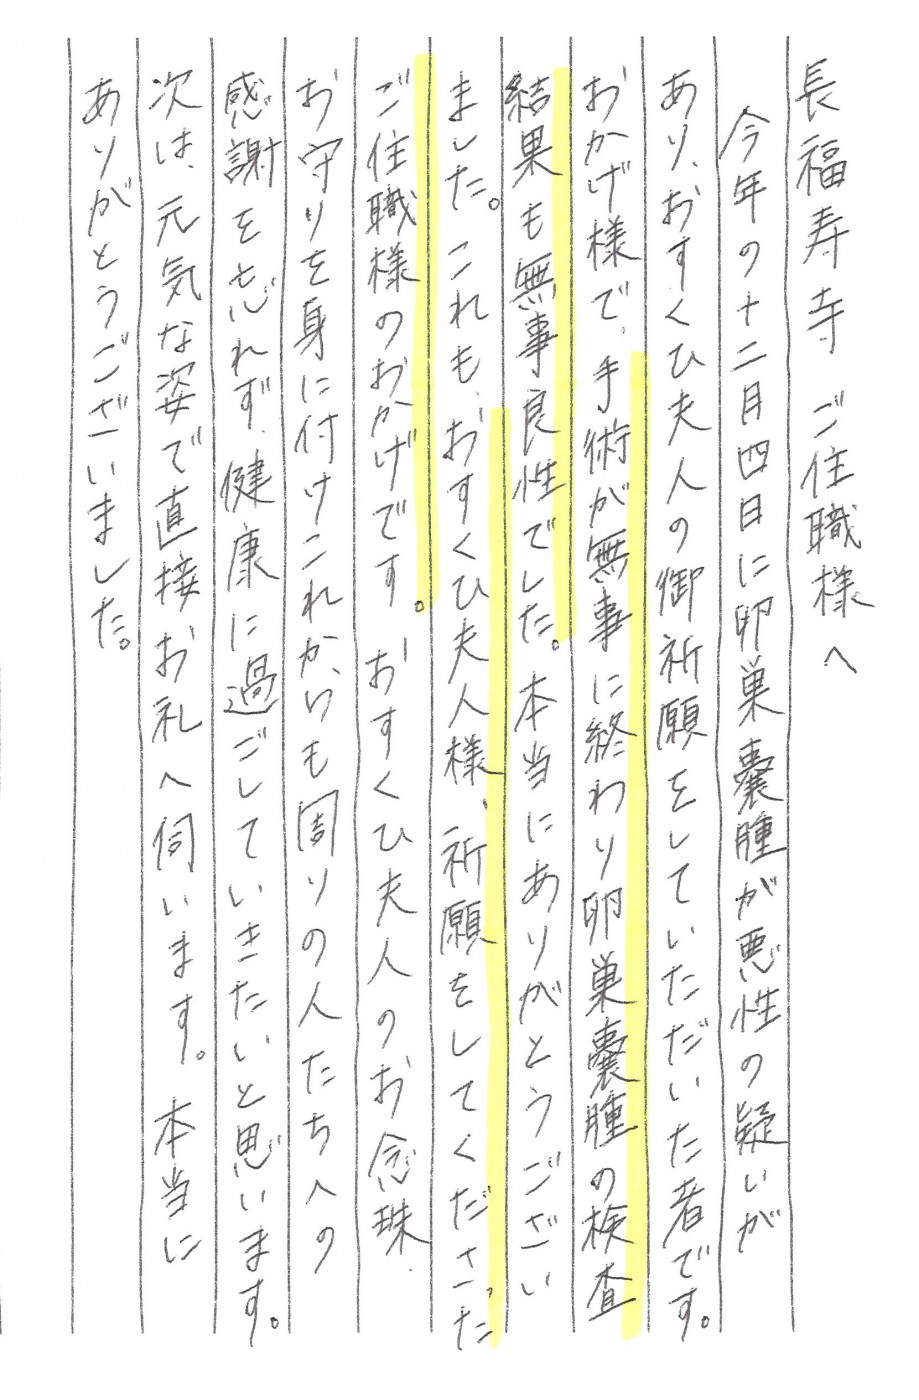 長福寿寺 ご住職様へ
今年の十二月四日に卵巣嚢腫が悪性の疑いが
あり、おすくひ夫人の御祈願をしていただいた者です。
おかげ様で、手術が無事に終わり卵巣嚢腫の検査
結果も無事良性でした。本当にありがとうござい
ました。これも、おすくひ夫人様、祈願をしてくださった
ご住職様のおかげです。おすくひ夫人のお念珠、
お守りを身に付けこれからも周りの人たちへの
感謝を忘れず、健康に過ごしていきたいと思います。
次は、元気な姿で直接お礼へ伺います。本当に
ありがとうございました。